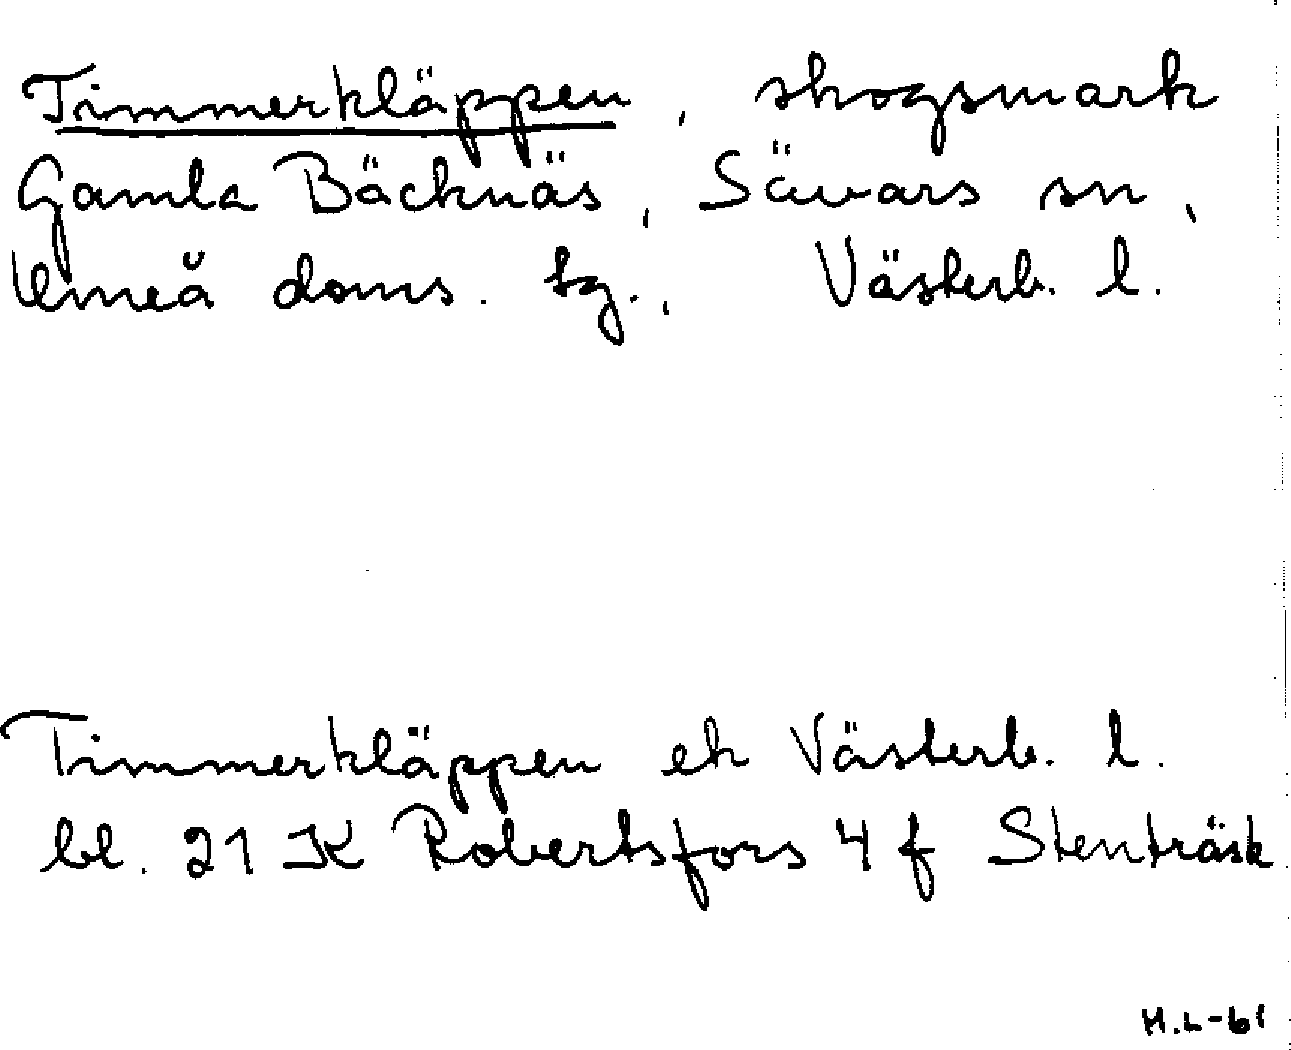 Timmerkläppen, skogsmark
Gamla Bäcknäs, Sävars sn,
Umeå doms. tg., Västerb. l.
Timmerkläppen ek Västerb. l.
bl. 21 K Robertsfors 4 f Stenträsk
H.L-61